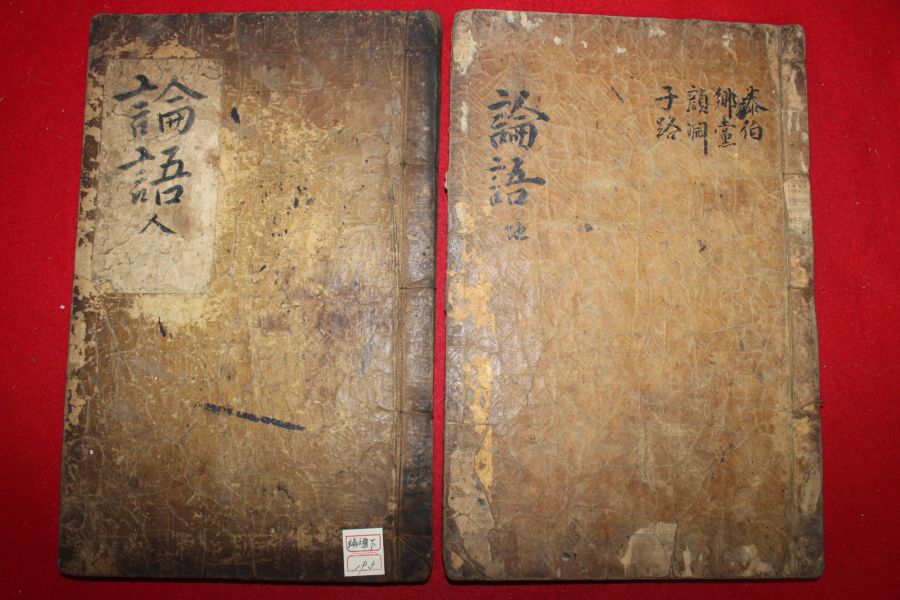 泰伯
鄉黨
顔淵
子路
論語 地
論語 人
論語下